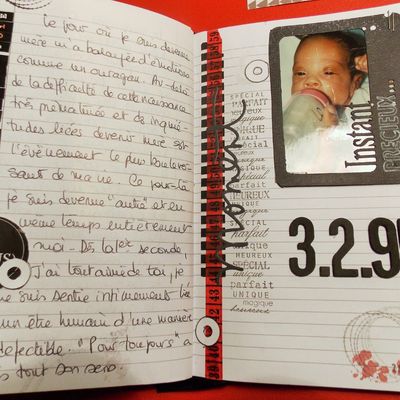 Le jour où je suis devenue
mère m'a balancée d'émotions
comme un ouragan. Au-delà
de la difficulté de cette naissance
très prématurée et de inquié-
tudes liées devenir mère est
l'évènement le plus boulever-
sant de ma vie. Ce jour-là
je suis devenue "autre" et en
même temps entièrement
moi - Dès la 1ère seconde,
J'ai tout aimé de toi, je
me suis sentie intimement liée
un être humain d'une manière
défectible. "Pour toujours" a
tout son sens.
SPÉCIAL
PARFAIT
HEUREUX
UNIQUE
parfait
HEUREUX
SPÉCIAL
UNIQUE
parfait
UNIQUE
magique
heureux
moment
Instant
PRÉCIEUX...
3.2.9